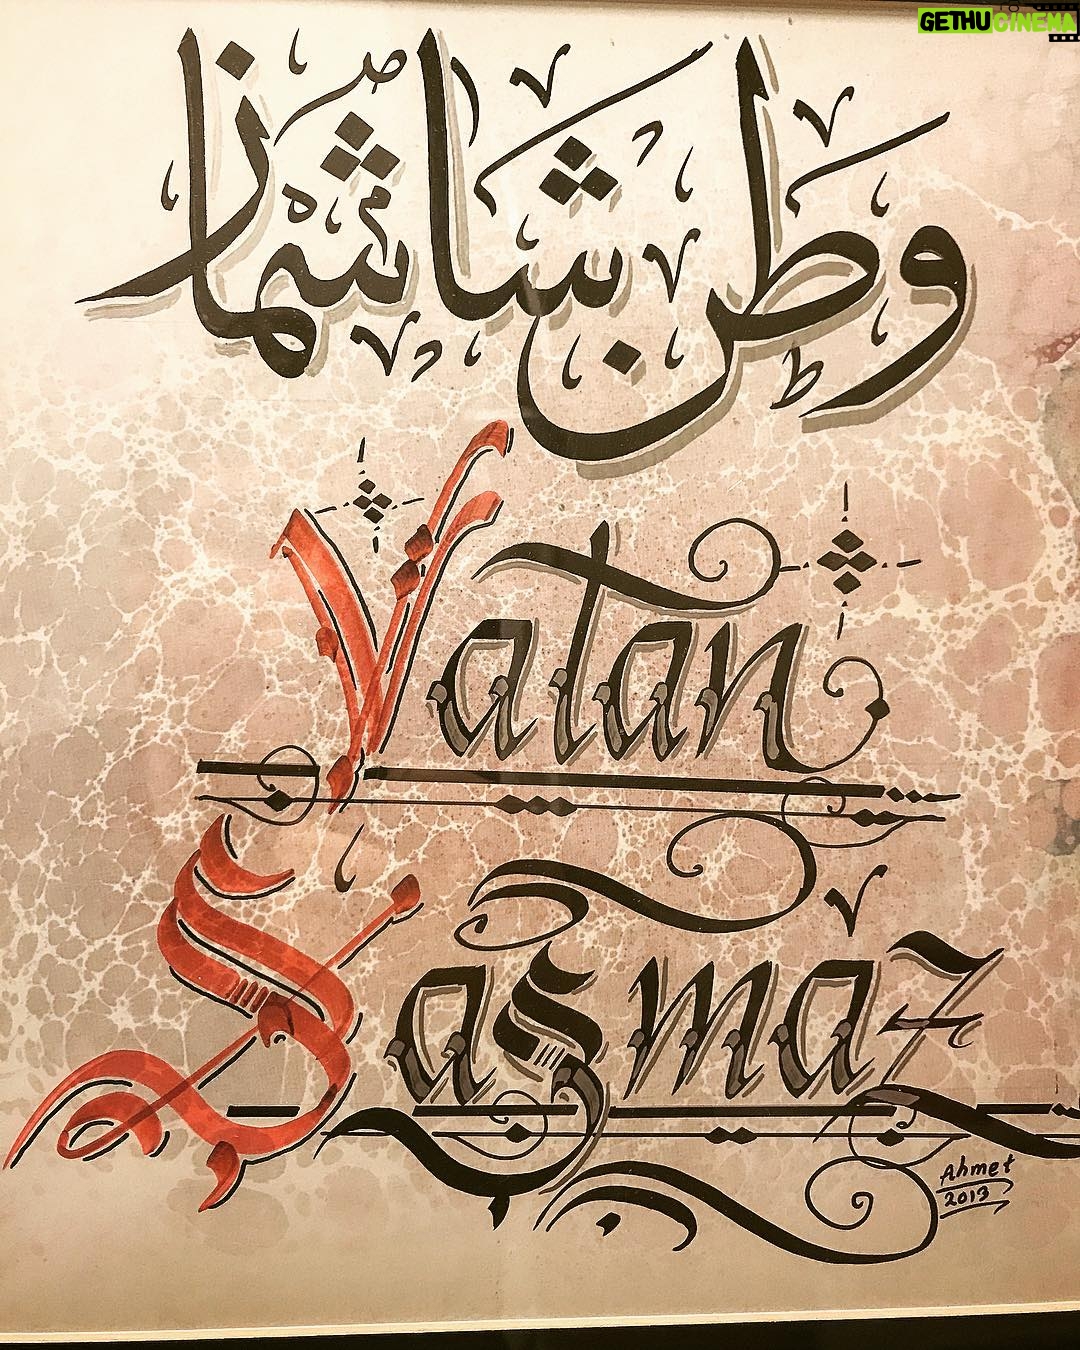 GETHUCINEMA
وطن شاشماز
Vatan
Şaşmaz
Ahmet
2013